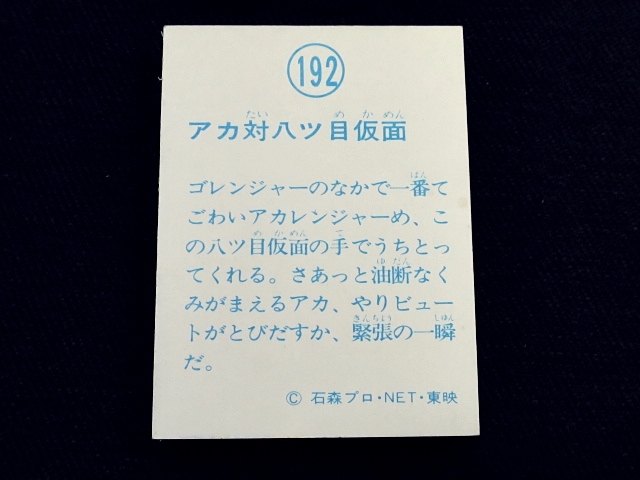 192
アカ対八ツ目仮面
ゴレンジャーのなかで一番て
ごわいアカレンジャーめ、こ
の八ツ目仮面の手でうちとっ
てくれる。さあっと油断なく
みがまえるアカ、やりビュー
トがとびだすか、緊張の一瞬
だ。
© 石森プロ・NET・東映